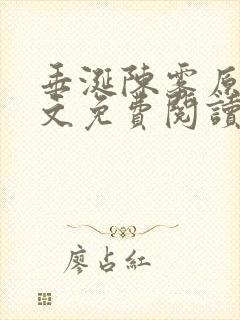 垂涎陳霧原
文免費閱讀
廖占紅